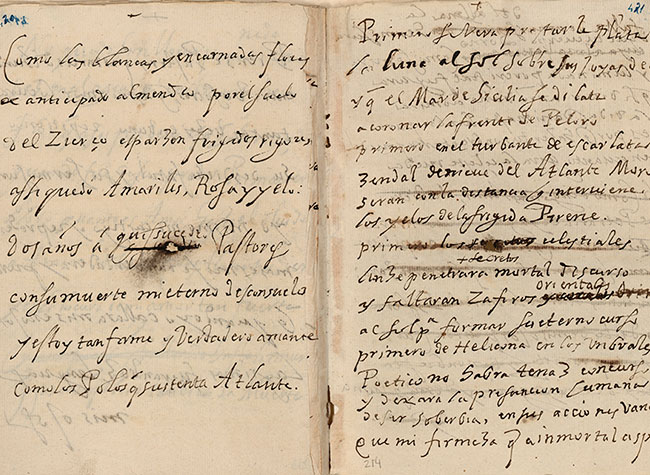 Como las blancas y encarnadas flores
de anticipado almendro por el suelo
del Zierço esparzen frigidos rigores
assi quedo Amarilis, Rosa y yelo:
dos años á que sucede Pastores
con su muerte mi eterno desconsuelo
y estoy tan firme y Verdadero amante
como los Polos q sustenta Atlante.
421
Primero se vera prestarle plata
la luna al sol sobre sus joyas de
y q el Mar de Sicilia se dilata
a coronar la frente de Peloro
primero en el turbante de escarlata
zendal de nieve del Atlante Moro
seran con la distancia q interviene
los yelos de la frigida Pirene.
primero los celestiales
secretos
linze penetrara mortal discurso
y faltaran Zafiros
orientales
al sol pa formar su eterno curso
primero de Helicona en los Umbrales
Poetico no sabra tener concurso
y dexara la presuncion humana
de ser soberbia, en sus acciones vana
que mi firmeza q a inmortal aspira
214